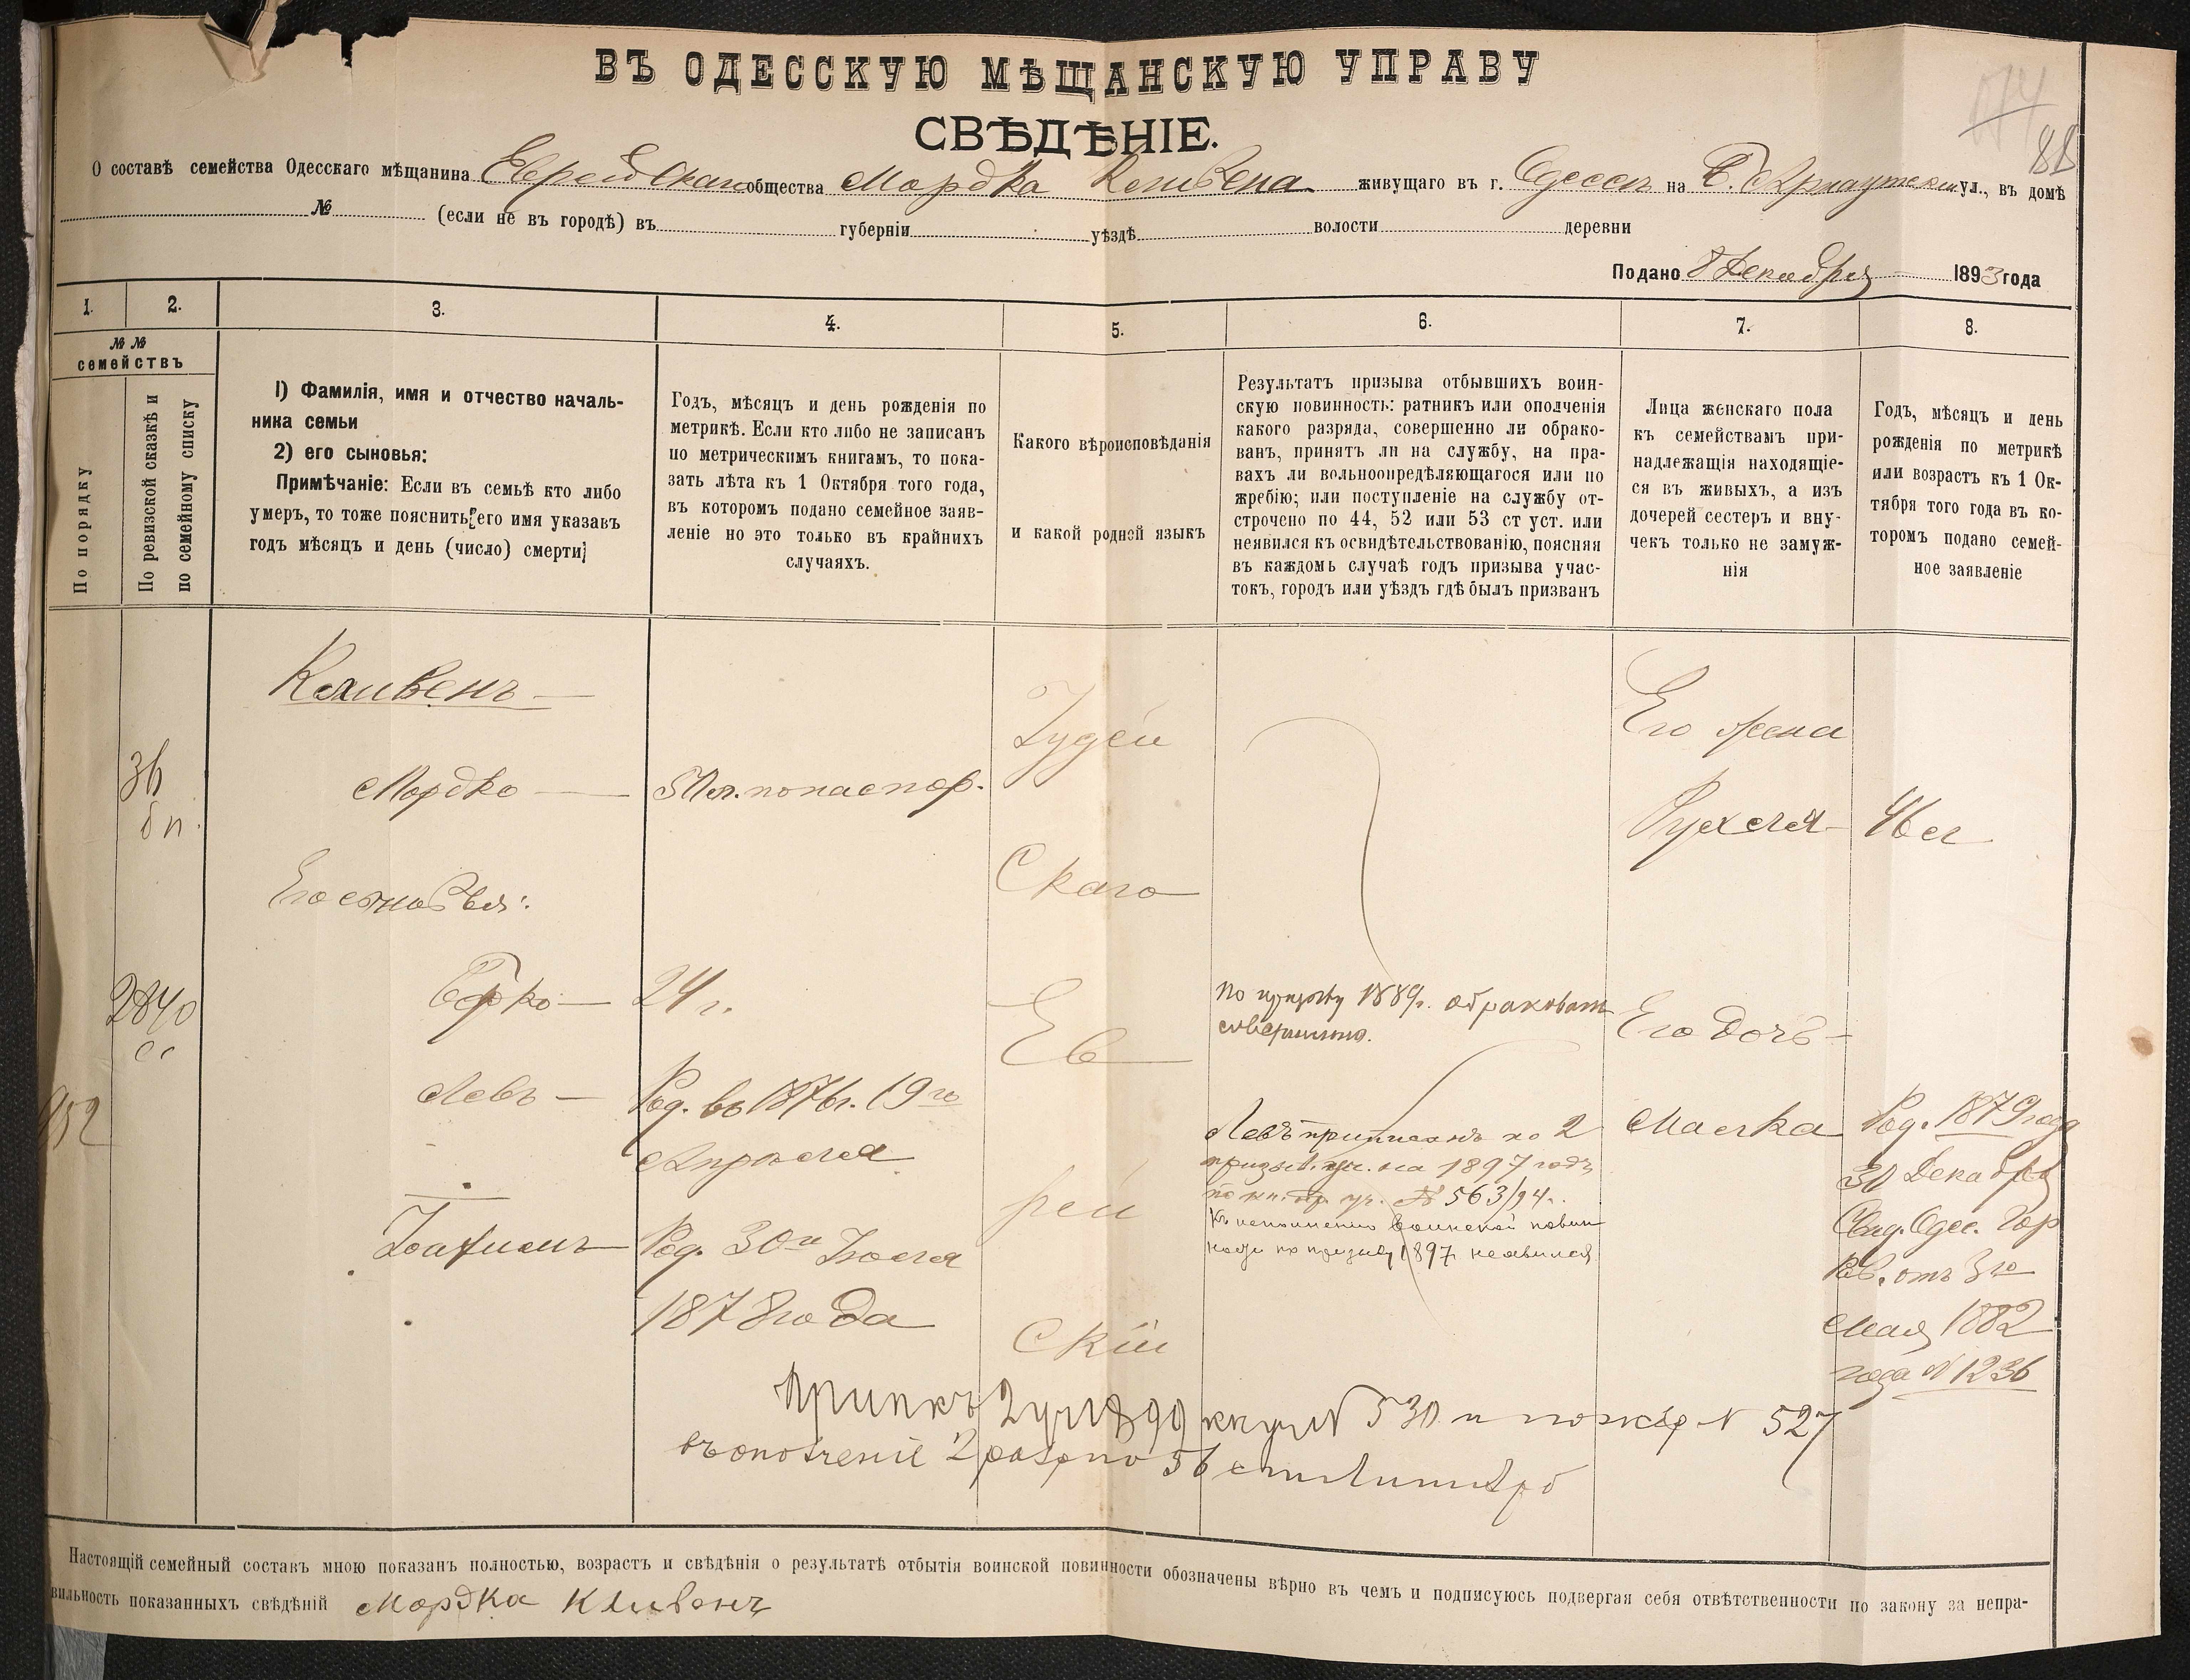 ВЪ ОДЕССКУЮ МѢЩАНСКУЮ УПРАВУ
СВѢДѢНІЕ.
О составѣ семейства Одесскаго мѣщанина Еврейскаго общества Мордка Кливена живущаго въ г. Одессѣ на Б. Арнаутской ул., въ домѣ
№ (если не въ городѣ) въ губерніи уѣздѣ волости деревни
Подано 8 Декабря 1893 года
1. 2. 3. 4. 5. 6. 7. 8.
№ №
семействъ
По порядку
По ревизской сказкѣ и
по семейному списку
1) Фамилія, имя и отчество началь-
ника семьи
2) его сыновья:
Примѣчаніе: Если въ семьѣ кто либо
умеръ, то тоже пояснить его имя указавъ
годъ мѣсяцъ и день (число) смерти;
Годъ, мѣсяцъ и день рожденія по
метрикѣ. Если кто либо не записанъ
по метрическимъ книгамъ, то пока-
зать лѣта къ 1 Октября того года,
въ которомъ подано семейное заяв-
леніе но это только въ крайнихъ
случаяхъ.
Какого вѣроисповѣданія
и какой родной языкъ
Результатъ призыва отбывшихъ воин-
скую повинность: ратникъ или ополченія
какого разряда, совершенно ли обрако-
ванъ, принятъ ли на службу, на пра-
вахъ ли вольноопредѣляющагося или по
жребію; или поступленіе на службу от-
строчено по 44, 52 или 53 ст уст. или
неявился къ освидѣтельствованію, поясняя
въ каждомъ случаѣ годъ призыва учас-
токъ, городъ или уѣздъ гдѣ былъ призванъ
Лица женскаго пола
къ семействамъ при-
надлежащія находящіе-
ся въ живыхъ, а изъ
дочерей сестеръ и вну-
чекъ только не замуж-
нія
Годъ, мѣсяцъ и день
рожденія по метрикѣ
или возрастъ къ 1 Ок-
тября того года въ ко-
торомъ подано семей-
ное заявленіе
Кливенъ
Мордко
Его сыновья:
Борко
Левъ
Іоахимъ
952
2840
сс
50 л. по паспор.
24 г.
Род. въ 1876 г. 19го
Апрѣля
Род. 30го Іюля
1878 года
Іудей
скаго
Ев
рей
скій
По призыву 1889 г. обракованъ
совершенно.
Левъ приписанъ ко 2
призыв. уч. на 1897 годъ
по кн. пр. уч. № 563/94 г.
Къ исполненію воинской повин
ности по призыву 1897 неявился
Его жена
Рухля
Его дочь
Малка
46 л
Род. 1879 года
30 Декабря
Свид. Одес. Гор
Рав. отъ 3го
Мая 1882
года № 1236
Прип къ 2 уч 1899 кн уч № 530 и по жер № 527
въ ополченіе 2 раз по 56 ст
Настоящій семейный составъ мною показанъ полностью, возрастъ и свѣдѣнія о результатѣ отбытія воинской повинности обозначены вѣрно въ чемъ и подписуюсь подвергая себя отвѣтственности по закону за непра-
вильность показанныхъ свѣдѣній Мордка Кливенъ